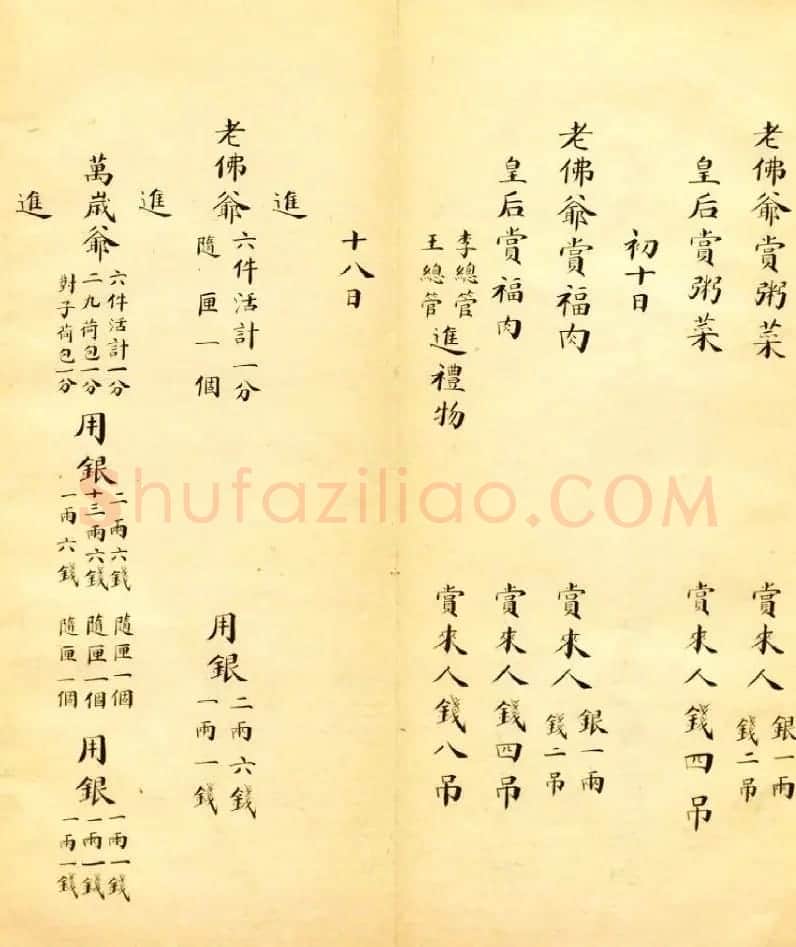 老佛爺賞粥菜 賞來人 銀一兩 錢二吊
皇后賞粥菜 賞來人錢四吊
初十日
老佛爺賞福肉 賞來人 銀一兩 錢二吊
皇后賞福肉 賞來人錢四吊
李總管 王總管 進禮物 賞來人錢八吊
十八日
進
老佛爺 六件活計一分 隨匣一個 用銀 二兩六錢 一兩一錢
進
萬歲爺 六件活計一分 二九荷包一分 對子荷包一分 用銀 二兩六錢 十三兩六錢 一兩六錢 隨匣一個 隨匣一個 隨匣一個 用銀 一兩一錢 一兩一錢 一兩一錢
進
Shufaziliao.COM